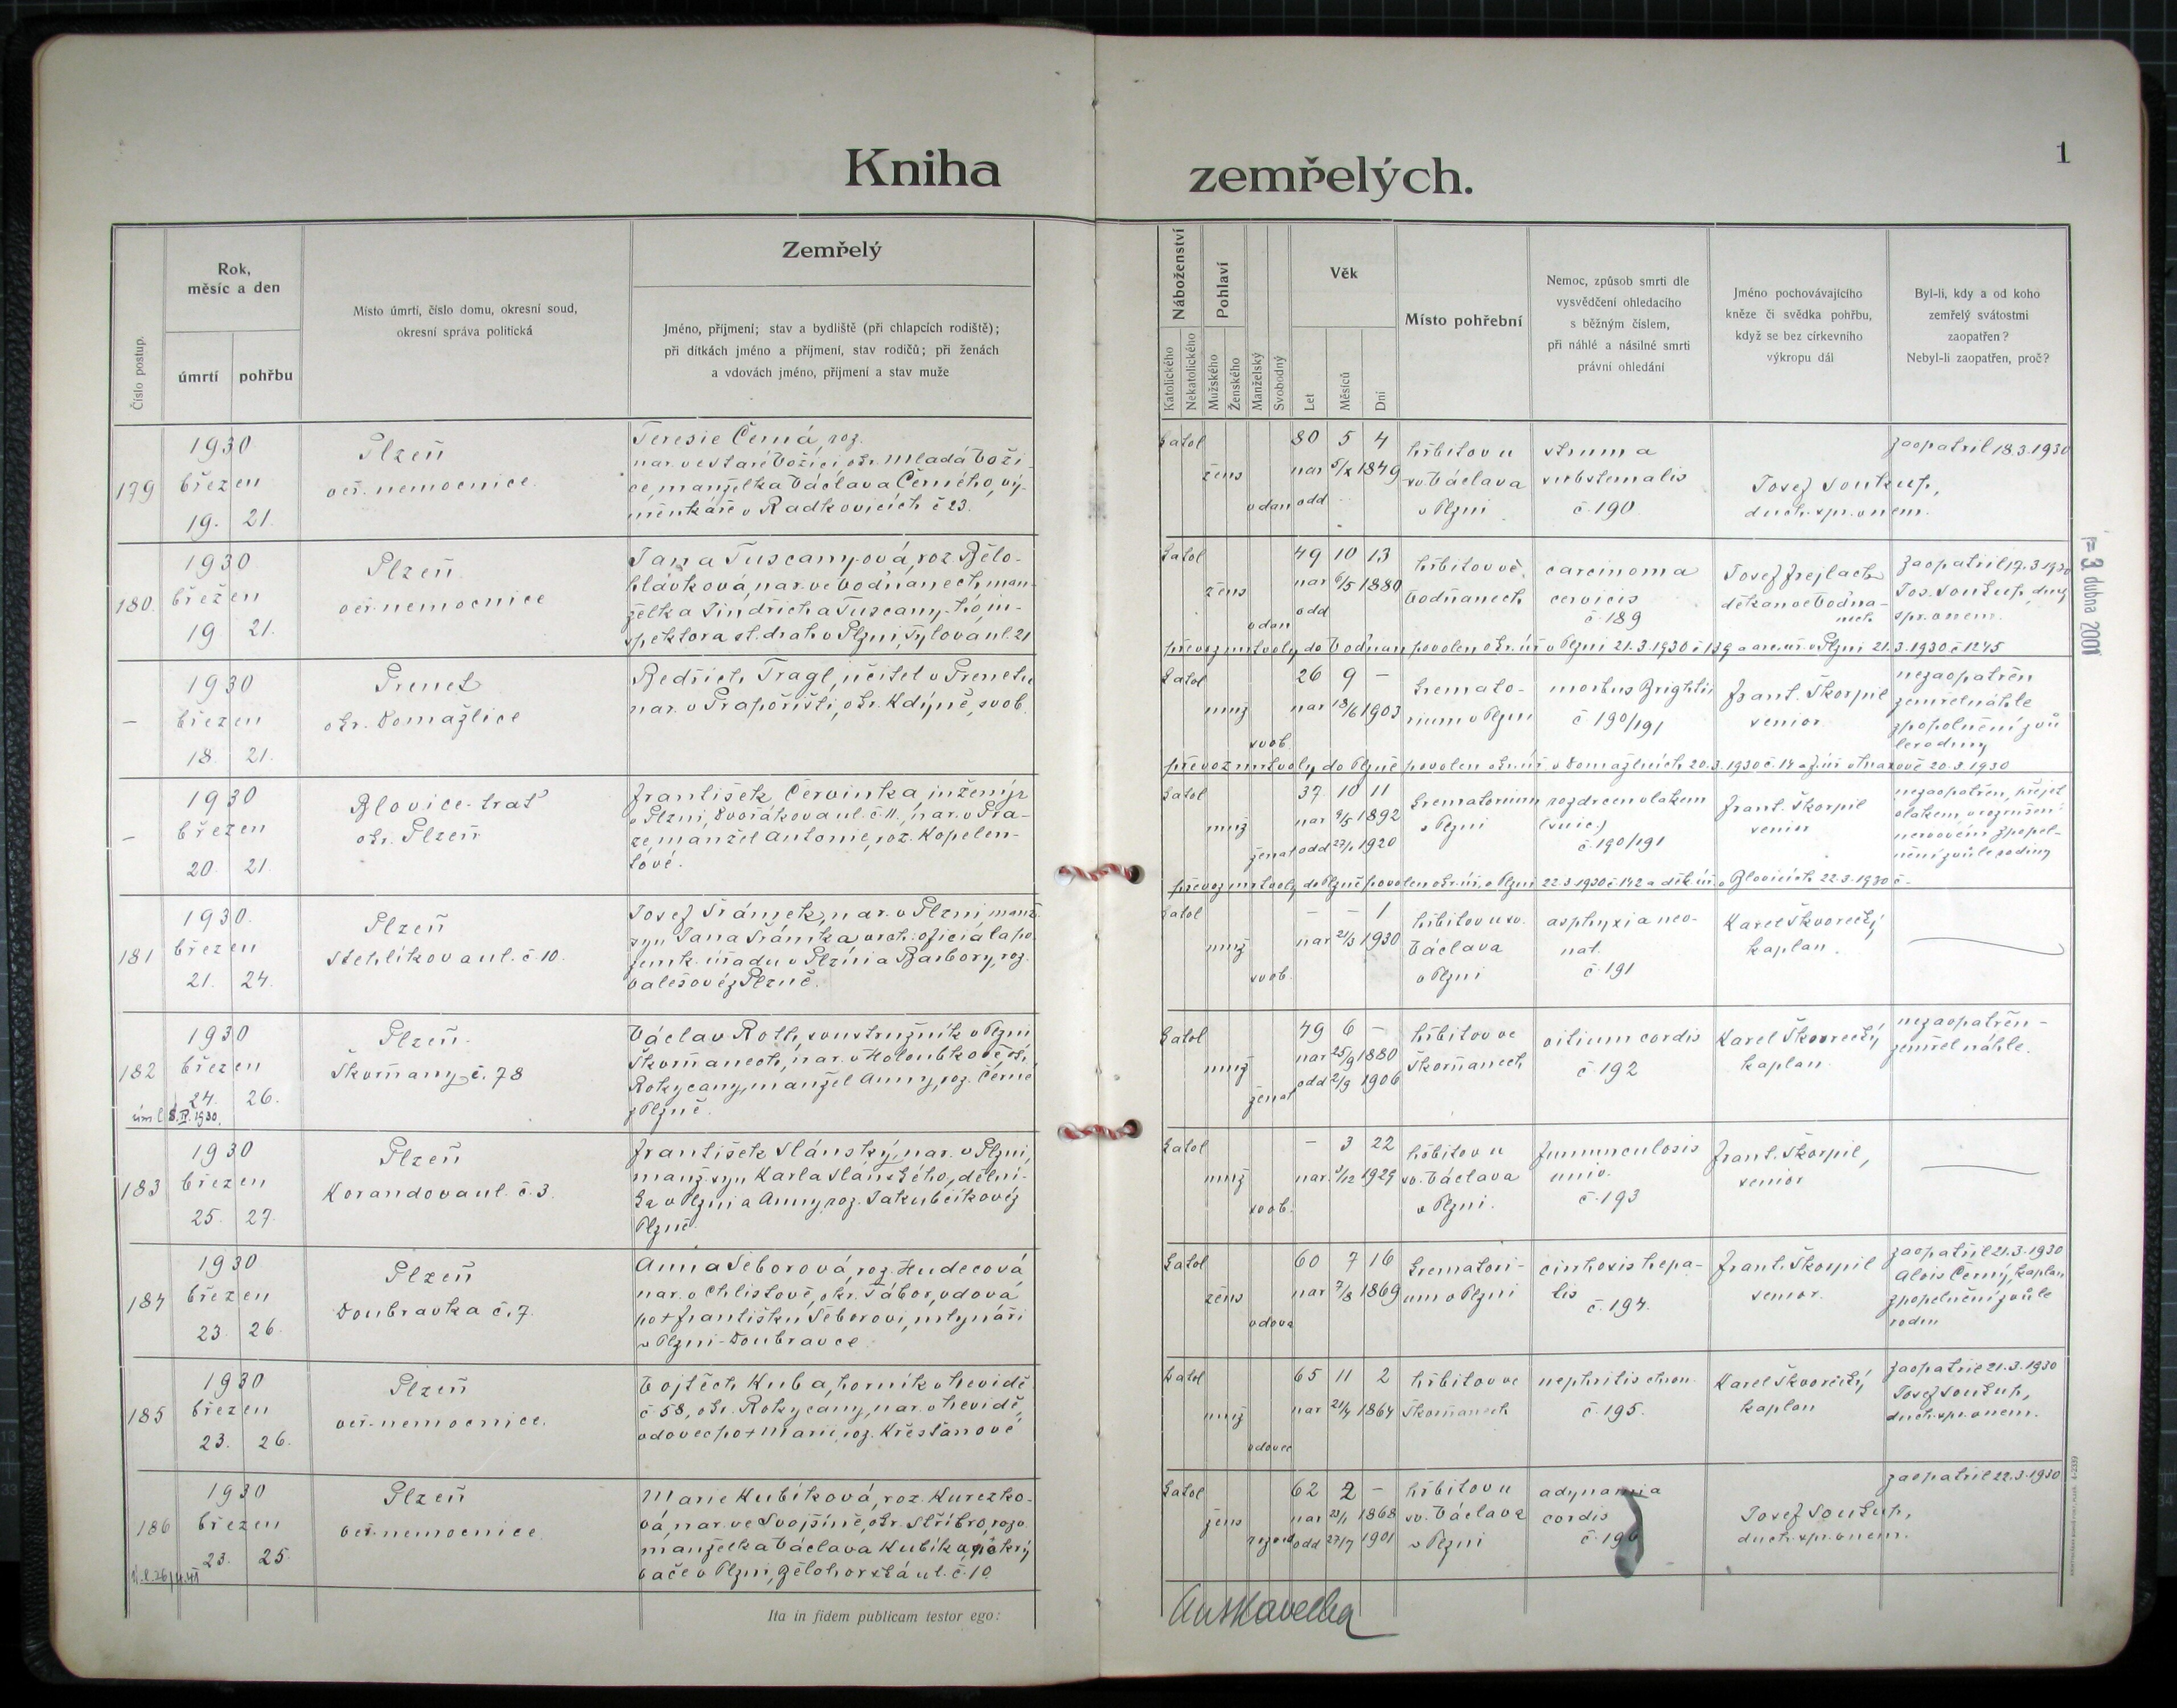 Kniha zemřelých.
1
Číslo postup.
Rok,
měsíc a den
úmrtí
pohřbu
Místo úmrtí, číslo domu, okresní soud,
okresní správa politická
Zemřelý
Jméno, příjmení; stav a bydliště (při chlapcích rodiště);
při dítkách jméno a příjmení, stav rodičů; při ženách
a vdovách jméno, příjmení a stav muže
Náboženství
Katolického
Nekatolického
Pohlaví
Mužského
Ženského
Manželský
Svobodný
Věk
Let
Měsíců
Dní
Místo pohřební
Nemoc, způsob smrti dle
vysvědčení ohledacího
s běžným číslem,
při náhlé a násilné smrti
právní ohledání
Jméno pochovávajícího
kněze či svědka pohřbu,
když se bez církevního
výkropu dál
Byl-li, kdy a od koho
zemřelý svátostmi
zaopatřen?
Nebyl-li zaopatřen, proč?
179
1930
březen
19. 21.
Plzeň
veř. nemocnice.
Teresie Černá, roz.
nar. ve Staré Vožici, okr. Mladá Voži-
ce, manželka Václava Černého, vý-
měnkáře v Radkovicích č 23.
katol
žens
vdan
80 5 4
nar 5/X 1849
odd
hřbitov u
sv. Václava
v Plzni
struma
substernalis
č. 190
Josef Soukup,
duch. spr. v nem.
zaopatřil 18.3.1930
180.
1930
březen
19 21.
Plzeň.
veř. nemocnice
Jana Tuscany-ová, roz. Bělo-
hlávková, nar. ve Vodňanech, man-
želka Jindřicha Tuscany-ho, in-
spektora st. drah v Plzni, Tylova ul. 21
katol
žens
vdan
49 10 13
nar 6/5 1880
odd
hřbitov ve
Vodňanech
carcinoma
cervicis
č 189
Josef Frejlach
děkan ve Vodňa-
nech
zaopatřil 17.3.1930
Jos. Soukup, duch
spr. v nem.
převoz mrtvoly do Vodňan povolen okr. úř. v Plzni 21.3.1930 č 139 a arc. úř. v Plzni 21.3.1930 č 1245
–
1930
březen
18. 21.
Prenet
okr. Domažlice
Bedřich Tragl, učitel v Prenetu
nar. v Prapořišti, okr. Kdýně, svob.
katol
muž
svob.
26 9 –
nar 18/6 1903
kremato-
rium v Plzni
morbus Brightii
č 190/191
Frant. Škorpil
senior.
nezaopatřen
zemřel náhle
zpopelnění z vů
le rodiny
převoz mrtvoly do Plzně povolen okr. úř. v Domažlicích 20.3.1930 č. 14 a 20.3.1930
–
1930
březen
20. 21.
Blovice-trať
okr. Plzeň
František Červinka, inženýr
v Plzni, Dvořákova ul. č. 11., nar. v Pra-
ze, manžel Antonie, roz. Kopelen-
tové.
katol
muž
ženat
37 10 11
nar 9/5 1892
odd 27/1 1920
krematorium
v Plzni
rozdrcen vlakem
(suic.)
č. 190/191
Frant. Škorpil
senior
nezaopatřen, přejet
vlakem,
zpopel-
nění z vůle rodiny
převoz mrtvoly do Plzně povolen okr. úř. v Plzni 22.3.1930 č 142 a děk. úř. v Blovicích 22.3.1930 č –
181
1930.
březen
21. 24.
Plzeň
Stehlíkova ul. č. 10.
Josef Šrámek, nar. v Plzni, manž.
syn Jana Šrámka, vrch. oficiála po
zemk. úřadu v Plzni a Barbory, roz.
Valešové z Plzně.
katol
muž
svob.
– – 1
nar 21/3 1930
hřbitov u sv.
Václava
v Plzni
asphyxia neo-
nat.
č. 191
Karel Škvorecký,
kaplan.
182
1930
březen
24. 26.
Plzeň.
Škvrňany č. 78
Václav Roth, soustružník v Plzni
Škvrňanech, nar. v Holoubkově, ok.
Rokycany, manžel Anny, roz. Černé
z Plzně.
katol
muž
ženat
49 6 –
nar 25/9 1880
odd 2/9 1906
hřbitov ve
Škvrňanech
vitium cordis
č 192
Karel Škvorecký,
kaplan.
nezaopatřen –
zemřel náhle.
183
1930
březen
25. 27.
Plzeň
Korandova ul. č. 3.
František Slánský, nar. v Plzni,
manž. syn Karla Slánského, dělní-
ka v Plzni a Anny, roz. Jakubčíkové z
Plzně.
katol
muž
svob.
– 3 22
nar. 3/12 1929
hřbitov u
sv. Václava
v Plzni.
furunculosis
univ.
č. 193
Frant. Škorpil,
senior
184
1930
březen
23. 26.
Plzeň
Doubravka č. 7.
Anna Šeborová, roz. Hudecová
nar. v Chlistově, okr. Tábor, vdova
po + Františku Šeborovi, mlynáři
v Plzni-Doubravce
katol
žens
vdova
60 7 16
nar 7/8 1869
krematori-
um v Plzni
cirrhosis hepa-
tis
č. 194.
Frant. Škorpil
senior.
zaopatřil 21.3.1930
Alois Černý, kaplan
zpopelnění z vůle
rodin
185
1930
březen
23. 26.
Plzeň
veř. nemocnice.
Vojtěch Kuba, horník v
č 58, okr. Rokycany, nar. v
vdovec po + Marii, roz. Křesťanové
katol
muž
vdovec
65 11 2
nar 21/4 1864
hřbitov ve
Škvrňanech
nephritis chron.
č. 195.
Karel Škvorecký,
kaplan
zaopatřil 21.3.1930
Josef Soukup,
duch. spr. v nem.
186
1930
březen
23. 25.
Plzeň
veř. nemocnice.
Marie Kubíková, roz. Kurezko-
vá, nar. ve Svojšíně, okr. Stříbro, rozv.
manželka Václava Kubíka, pokrý
vače v Plzni, Bělohorská ul. č. 10.
katol
žens
rozved
62 2 –
nar 23/1 1868
odd 27/7 1901
hřbitov u
sv. Václava
v Plzni
adynamia
cordis
č. 196
Josef Soukup,
duch. spr. v nem.
zaopatřil 22.3.1930
Ita in fidem publicam testor ego:
-3. dubna 2001